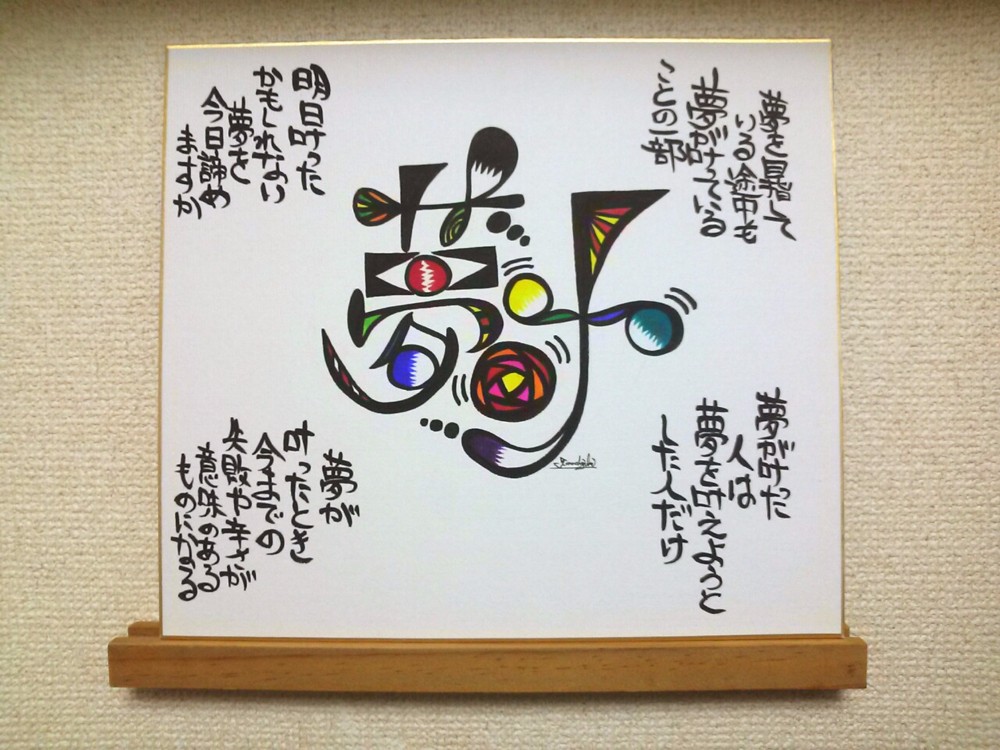 夢を目指して
いる途中も
夢が叶っている
ことの一部
夢が叶った
人は
夢を叶えようと
した人だけ
夢叶
明日叶った
かもしれない
夢を
今日諦め
ますか
夢が
叶ったとき
今までの
失敗や辛さが
意味のある
ものになる